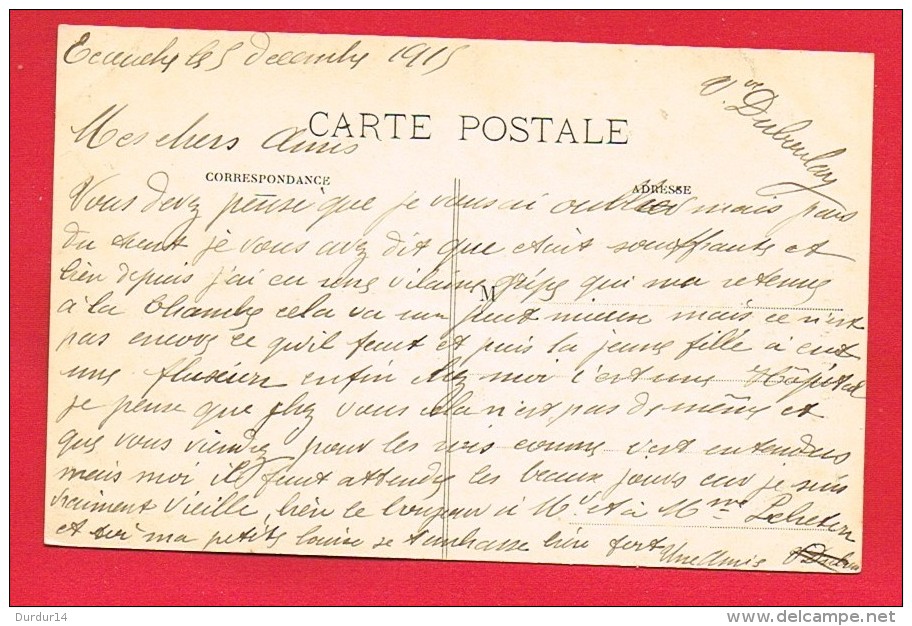 le 5 décembre 1915
Vve Duboulay
CARTE POSTALE
Mes chers Amis
CORRESPONDANCE
ADRESSE
Vous devez pensé que je vous ai oublier mais pas
du tout je vous avez dit que était souffrante et
bien depuis j'ai eu une vilaine gripe qui ma retenue
M
à la Chambre cela va un peut mieux mais ce n'est
pas encore ce qu'il faut et puis la jeune fille à eut
une fluxion enfin chez moi c'est une Hôpital
je pense que chez vous cela n'est pas de même et
que vous viendrez pour les rois comme c'est entendus
mais moi il faut attendre les beaux jours car je suis
vraiment vieille, bien le bonjour à Mr et à Mme
et toi ma petite Louise je t'embrasse bien fort
Une Amie
© Durdur14
www.delcampe.net